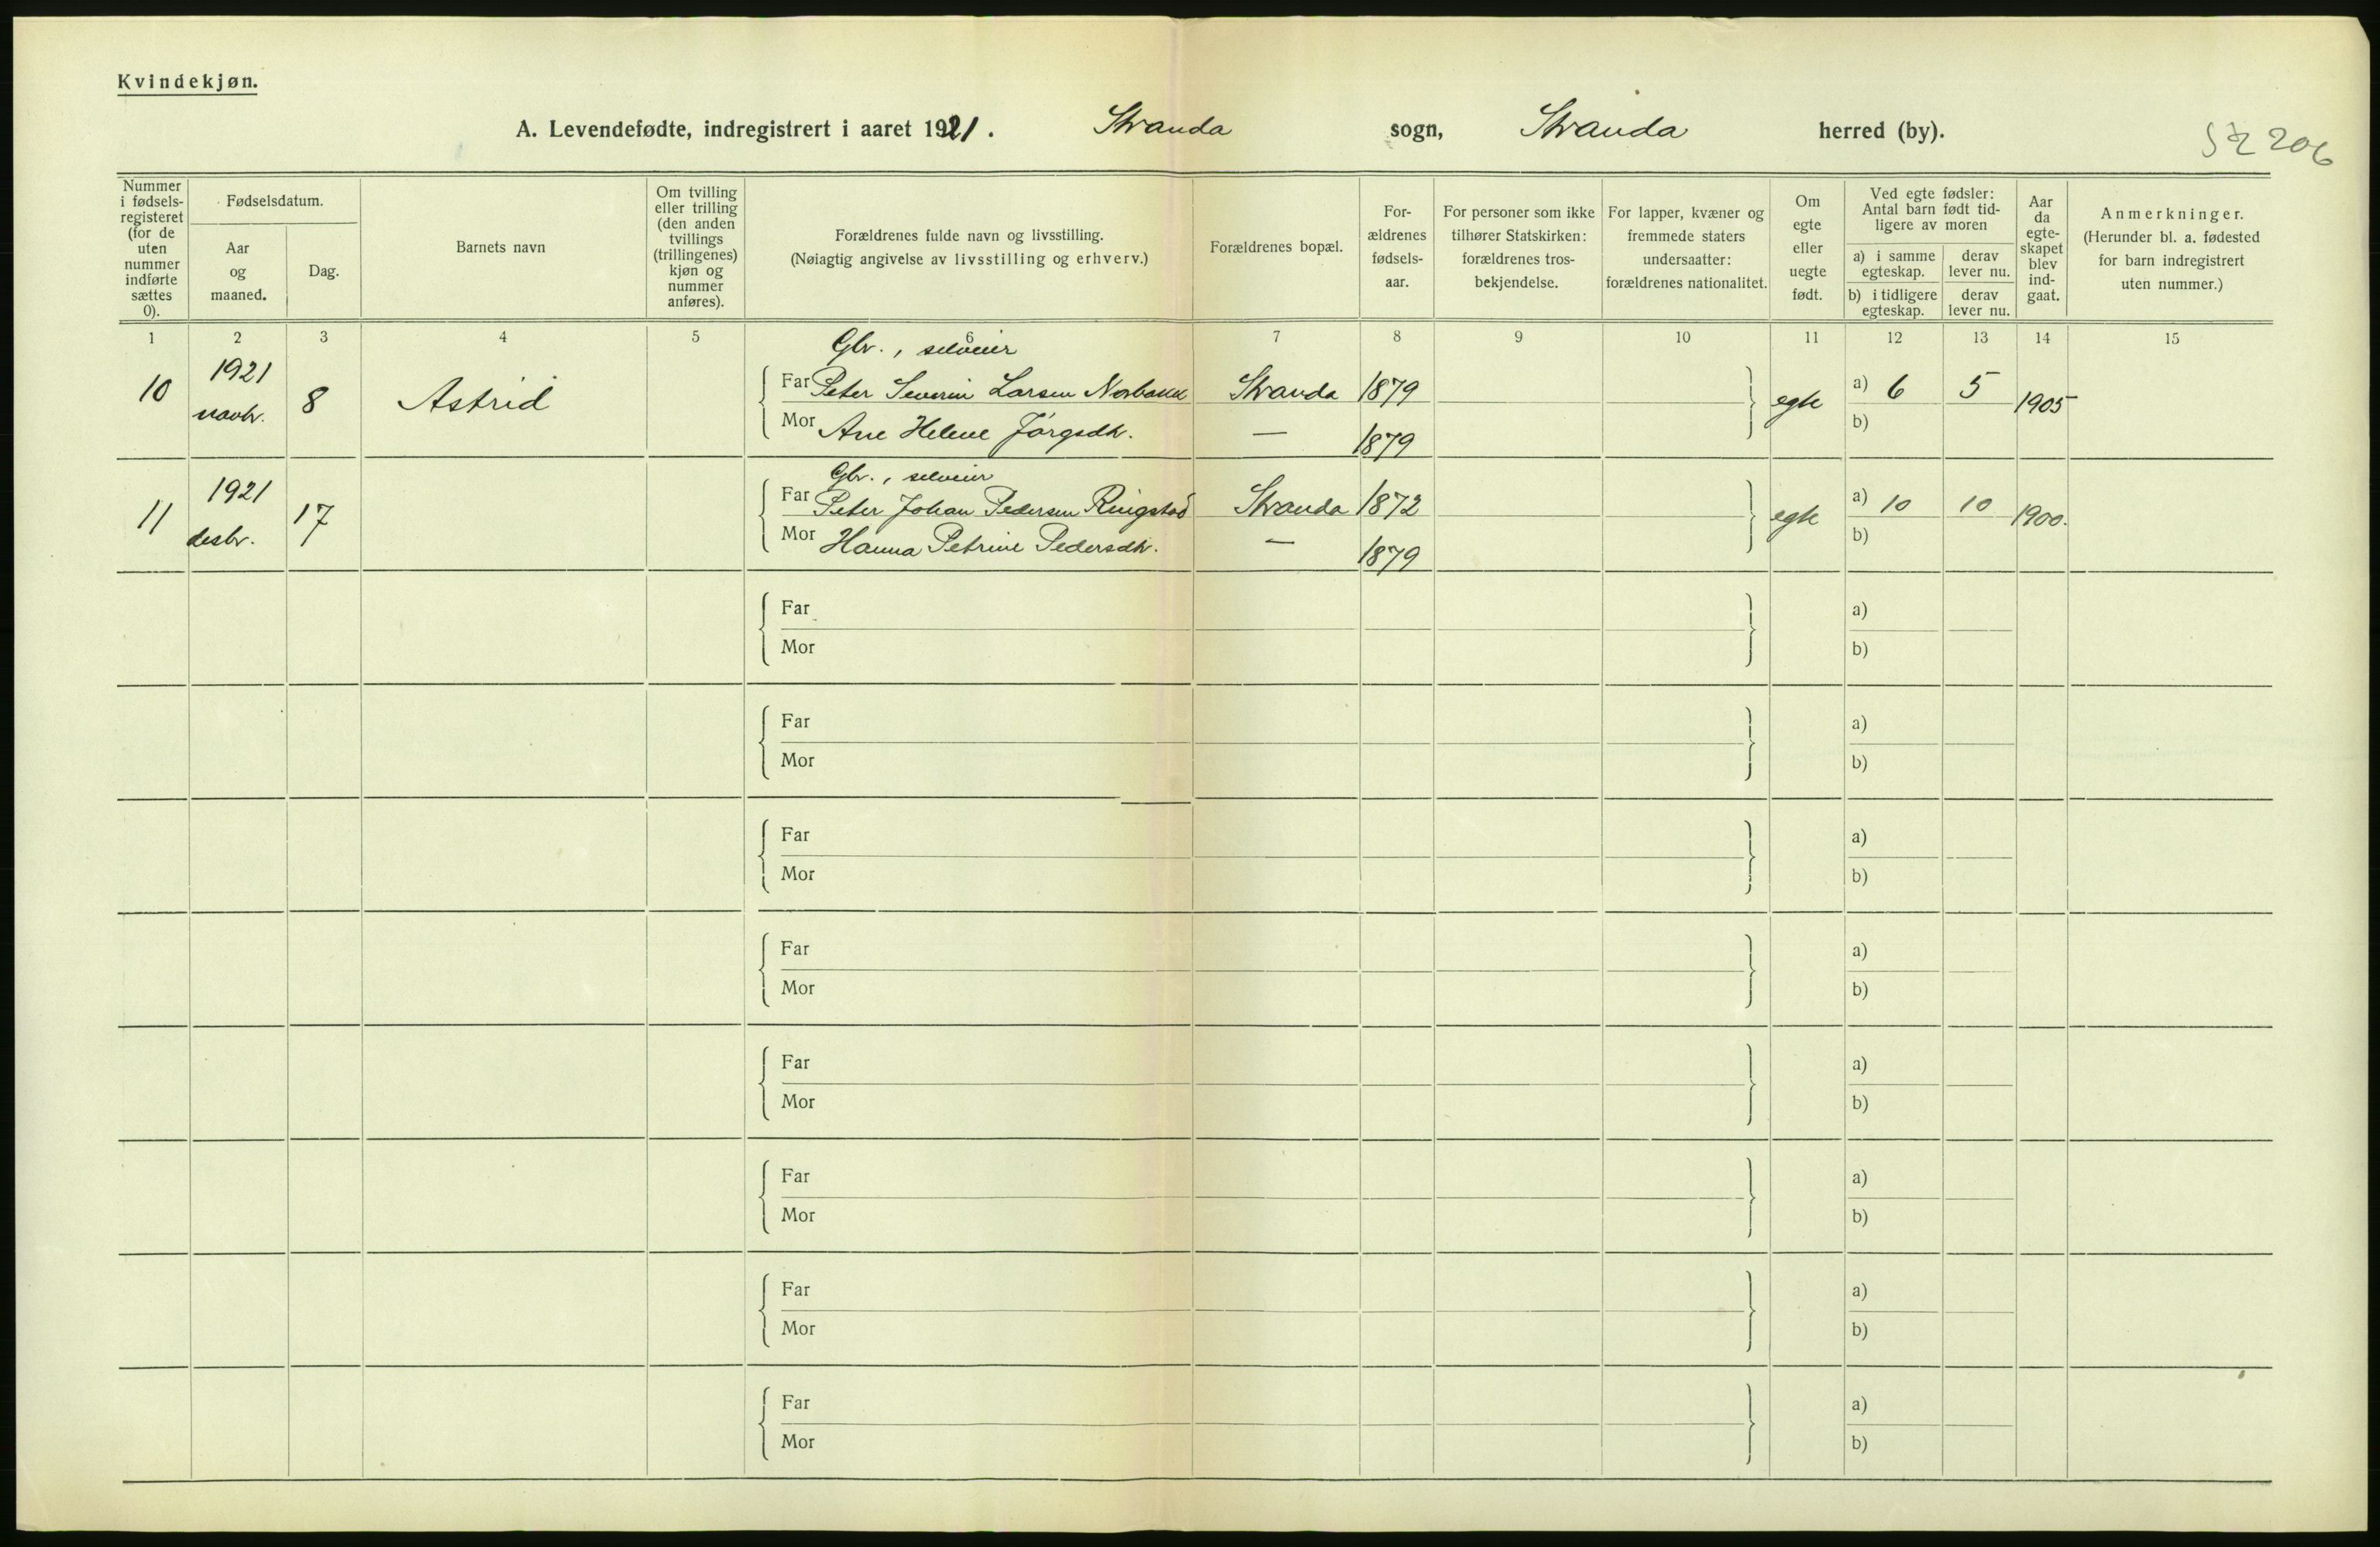 Kvindekjøn.
A. Levendefødte, indregistrert i aaret 1921. Stranda sogn, Stranda herred (by).
206
Nummer i fødsels-registeret (for de uten nummer indførte sættes 0).
Fødselsdatum.
Aar og maaned.
Dag.
Barnets navn
Om tvilling eller trilling (den anden tvillings (trillingenes) kjøn og nummer anføres).
Forældrenes fulde navn og livsstilling.
(Nøiagtig angivelse av livsstilling og erhverv.)
Forældrenes bopæl.
For-ældrenes fødsels-aar.
For personer som ikke tilhører Statskirken: forældrenes tros-bekjendelse.
For lapper, kvæner og fremmede staters undersaatter: forældrenes nationalitet.
Om egte eller uegte født.
Ved egte fødsler: Antal barn født tid-ligere av moren
a) i samme egteskap. derav lever nu.
b) i tidligere egteskap. derav lever nu.
Aar da egte-skapet blev ind-gaat.
Anmerkninger.
(Herunder bl. a. fødested for barn indregistrert uten nummer.)
1 2 3 4 5 6 7 8 9 10 11 12 13 14 15
Gbr., selveier
10 1921 novbr. 8 Astrid Far Peter Severin Larsen Stranda 1879 egte a) 6 5 1905
Mor Ane Helene Jörgsdtr. — 1879 b)
Gbr., selveier
11 1921 desbr. 17 Far Peter Johan Pedersen Ringstad Stranda 1872 egte a) 10 10 1900.
Mor Hanna Petrine Pedersdtr. — 1879 b)
Far a)
Mor b)
Far a)
Mor b)
Far a)
Mor b)
Far a)
Mor b)
Far a)
Mor b)
Far a)
Mor b)
Far a)
Mor b)
Far a)
Mor b)